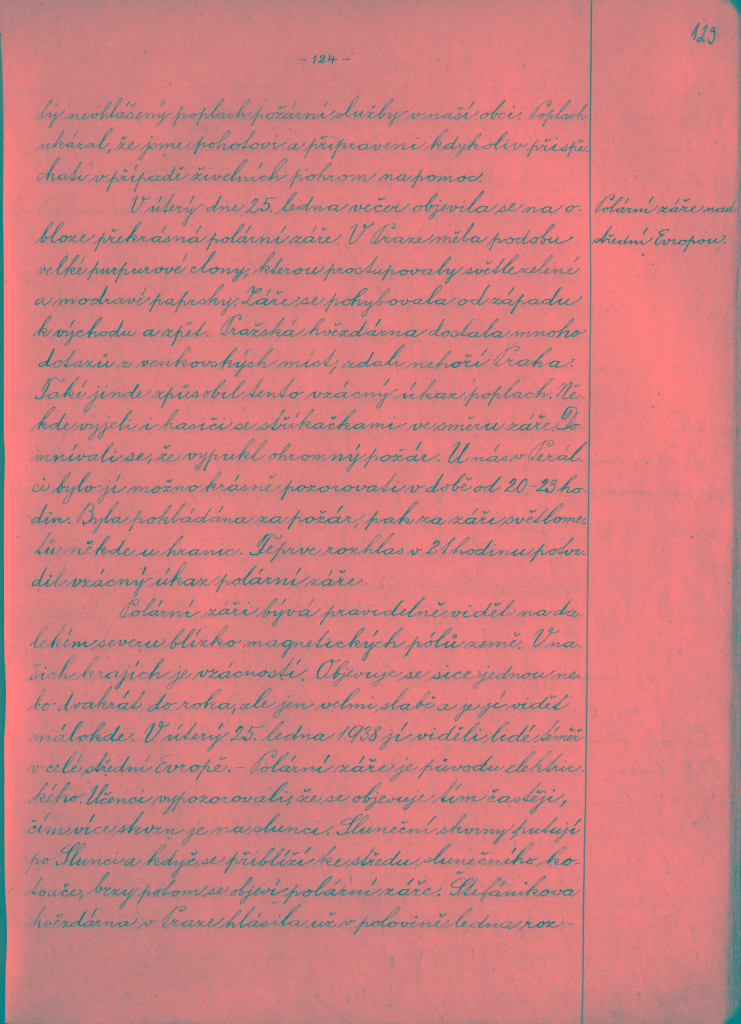 129
- 124 -
lý neohlášený poplach požární služby v naší obci. Poplach
ukázal, že jsme pohotovi a připraveni kdykoliv přispě-
chati v případě živelních pohrom na pomoc.
V úterý dne 25. ledna večer objevila se na o-
bloze překrásná polární záře. V Praze měla podobu
velké purpurové clony, kterou prostupovaly světle zelené
a modravé paprsky. Záře se pohybovala od západu
k východu a zpět. Pražská hvězdárna dostala mnoho
dotazů z venkovských míst, zdali nehoří Praha.
Také jinde způsobil tento vzácný úkaz poplach. Ně-
kde vyjeli i hasiči se stříkačkami ve směru záře. Do-
mnívali se, že vypukl ohromný požár. U nás v Peral-
ci bylo jí možno krásně pozorovati v době od 20-23 ho-
din. Byla pokládána za požár, pak za záři světlome-
tů někde u hranic. Teprve rozhlas v 21 hodinu potvr-
dil vzácný úkaz polární záře.
Polární záři bývá pravidelně vidět na da-
lekém severu blízko magnetických pólů země. V na-
šich krajích je vzácností. Objevuje se sice jednou ne-
bo dvakrát do roka, ale jen velmi slabě a je jí vidět
málokde. V úterý 25. ledna 1938 jí viděli lidé téměř
v celé střední Evropě. - Polární záře je původu elektric-
kého. Učenci vypozorovali, že se objevuje tím častěji,
čím více skvrn je na slunci. Sluneční skvrny putují
po Slunci a když se přiblíží ke středu slunečního ko-
touče, brzy potom se objeví polární záře. Štefánikova
hvězdárna v Praze hlásila už v polovině ledna roz-
Polární záře nad
střední Evropou.